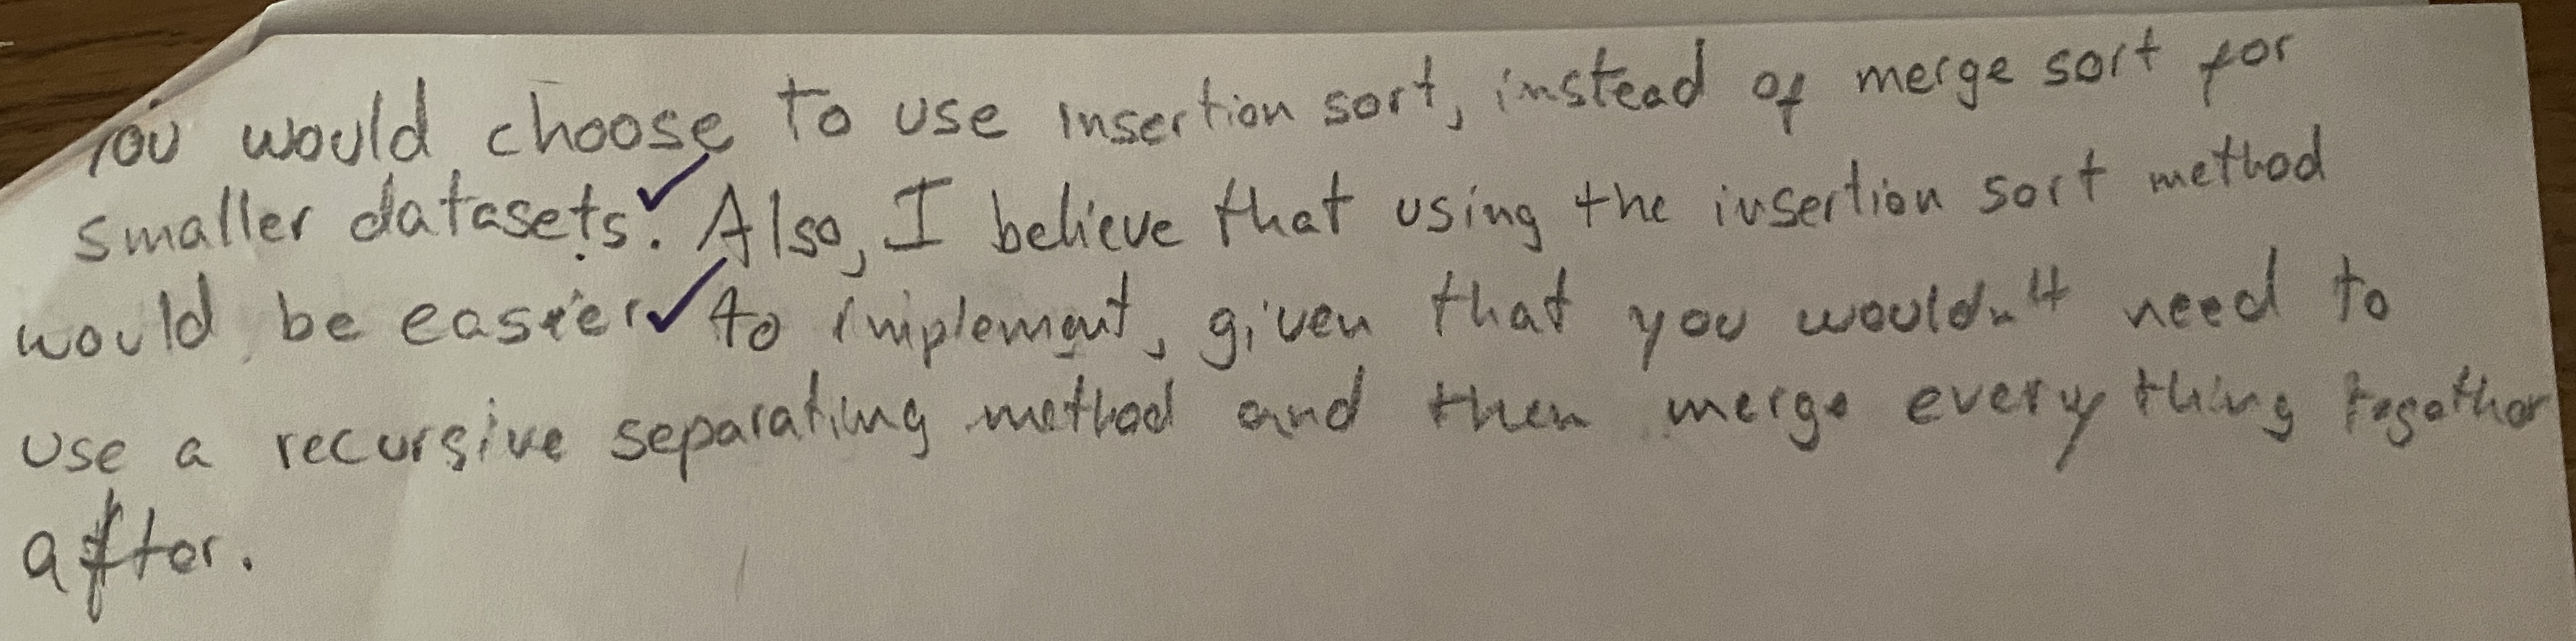 You would choose to use insertion sort, instead of merge sort for
smaller datasets. Also, I believe that using the insertion sort method
would be easier to implement, given that you wouldn't need to
use a recursive separating method and then merge every thing together
after.